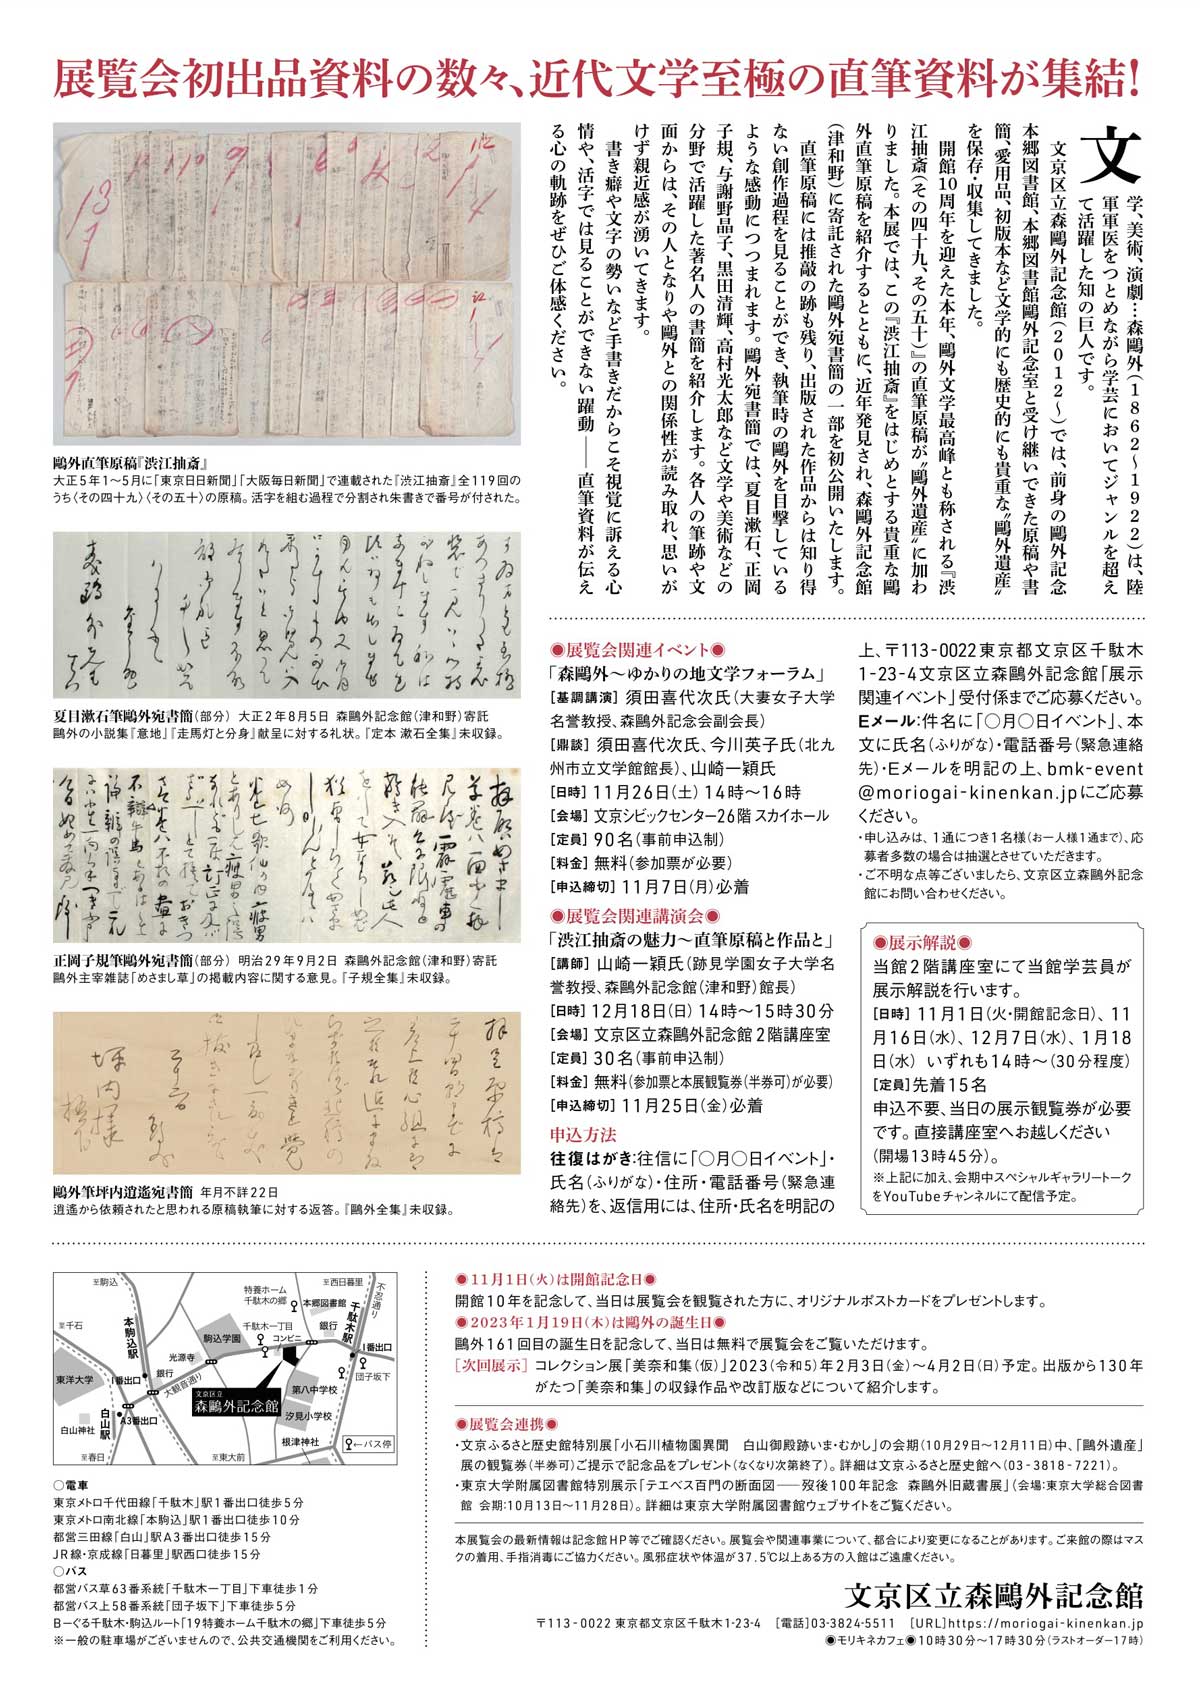 展覧会初出品資料の数々、近代文学至極の直筆資料が集結!
文学、美術、演劇…森鷗外(1862〜1922)は、陸
軍軍医をつとめながら学芸においてジャンルを超え
て活躍した知の巨人です。
文京区立森鷗外記念館(2012〜)では、前身の鷗外記念
本郷図書館、本郷図書館鷗外記念室と受け継いできた原稿や書
簡、愛用品、初版本など文学的にも歴史的にも貴重な〝鷗外遺産〟
を保存・収集してきました。
開館10周年を迎えた本年、鷗外文学最高峰とも称される『渋
江抽斎(その四十九、その五十)』の直筆原稿が〝鷗外遺産〟に加わ
りました。本展では、この『渋江抽斎』をはじめとする貴重な鷗
外直筆原稿を紹介するとともに、近年発見され、森鷗外記念館
(津和野)に寄託された鷗外宛書簡の一部を初公開いたします。
直筆原稿には推敲の跡も残り、出版された作品からは知り得
ない創作過程を見ることができ、執筆時の鷗外を目撃している
ような感動につつまれます。鷗外宛書簡では、夏目漱石、正岡
子規、与謝野晶子、黒田清輝、高村光太郎など文学や美術などの
分野で活躍した著名人の書簡を紹介します。各人の筆跡や文
面からは、その人となりや鷗外との関係性が読み取れ、思いが
けず親近感が湧いてきます。
書き癖や文字の勢いなど手書きだからこそ視覚に訴える心
情や、活字では見ることができない躍動――直筆資料が伝え
る心の軌跡をぜひご体感ください。
鷗外直筆原稿『渋江抽斎』
大正5年1〜5月に「東京日日新聞」「大阪毎日新聞」で連載された『渋江抽斎』全119回の
うち〈その四十九〉〈その五十〉の原稿。活字を組む過程で分割され朱書きで番号が付された。
夏目漱石筆鷗外宛書簡(部分) 大正2年8月5日 森鷗外記念館(津和野)寄託
鷗外の小説集『意地』『走馬灯と分身』献呈に対する礼状。『定本 漱石全集』未収録。
正岡子規筆鷗外宛書簡(部分) 明治29年9月2日 森鷗外記念館(津和野)寄託
鷗外主宰雑誌「めさまし草」の掲載内容に関する意見。『子規全集』未収録。
鷗外筆坪内逍遙宛書簡 年月不詳22日
逍遙から依頼されたと思われる原稿執筆に対する返答。『鷗外全集』未収録。
◉展覧会関連イベント◉
「森鷗外〜ゆかりの地文学フォーラム」
[基調講演] 須田喜代次氏(大妻女子大学
名誉教授、森鷗外記念会副会長)
[鼎談] 須田喜代次氏、今川英子氏(北九
州市立文学館館長)、山崎一穎氏
[日時] 11月26日(土) 14時〜16時
[会場] 文京シビックセンター26階 スカイホール
[定員] 90名(事前申込制)
[料金] 無料(参加票が必要)
[申込締切] 11月7日(月)必着
◉展覧会関連講演会◉
「渋江抽斎の魅力〜直筆原稿と作品と」
[講師] 山崎一穎氏(跡見学園女子大学名
誉教授、森鷗外記念館(津和野)館長)
[日時] 12月18日(日) 14時〜15時30分
[会場] 文京区立森鷗外記念館2階講座室
[定員] 30名(事前申込制)
[料金] 無料(参加票と本展観覧券(半券可)が必要)
[申込締切] 11月25日(金)必着
申込方法
往復はがき:往信に「○月○日イベント」・
氏名(ふりがな)・住所・電話番号(緊急連
絡先)を、返信用には、住所・氏名を明記の
上、〒113-0022東京都文京区千駄木
1-23-4文京区立森鷗外記念館「展示
関連イベント」受付係までご応募ください。
Eメール:件名に「○月○日イベント」、本
文に氏名(ふりがな)・電話番号(緊急連絡
先)・Eメールを明記の上、bmk-event
@moriogai-kinenkan.jpにご応募
ください。
・申し込みは、1通につき1名様(お一人様1通まで)、応
募者多数の場合は抽選とさせていただきます。
・ご不明な点等ございましたら、文京区立森鷗外記念
館にお問い合わせください。
◉展示解説◉
当館2階講座室にて当館学芸員が
展示解説を行います。
[日時] 11月1日(火・開館記念日)、11
月16日(水)、12月7日(水)、1月18
日(水) いずれも14時〜(30分程度)
[定員]先着15名
申込不要、当日の展示観覧券が必要
です。直接講座室へお越しください
(開場13時45分)。
※上記に加え、会期中スペシャルギャラリートーク
をYouTubeチャンネルにて配信予定。
至駒込
特養ホーム
千駄木の郷
至西日暮里
不忍通り
本郷図書館
千駄木駅
至千石
本駒込駅
駒込学園
千駄木一丁目
コンビニ
銀行
1番出口
光源寺
団子坂下
東洋大学
1番出口
銀行
大観音通り
文京区立
森鷗外記念館
第八中学校
白山駅
A3番出口
汐見小学校
白山神社
根津神社
←バス停
至春日
至東大前
○電車
東京メトロ千代田線「千駄木」駅1番出口徒歩5分
東京メトロ南北線「本駒込」駅1番出口徒歩10分
都営三田線「白山」駅A3番出口徒歩15分
JR線・京成線「日暮里」駅西口徒歩15分
○バス
都営バス草63番系統「千駄木一丁目」下車徒歩1分
都営バス上58番系統「団子坂下」下車徒歩5分
Bーぐる千駄木・駒込ルート「19特養ホーム千駄木の郷」下車徒歩5分
※一般の駐車場がございませんので、公共交通機関をご利用ください。
◉11月1日(火)は開館記念日◉
開館10年を記念して、当日は展覧会を観覧された方に、オリジナルポストカードをプレゼントします。
◉2023年1月19日(木)は鷗外の誕生日◉
鷗外161回目の誕生日を記念して、当日は無料で展覧会をご覧いただけます。
[次回展示] コレクション展「美奈和集(仮)」2023(令和5)年2月3日(金)〜4月2日(日)予定。出版から130年
がたつ「美奈和集」の収録作品や改訂版などについて紹介します。
◉展覧会連携◉
・文京ふるさと歴史館特別展「小石川植物園異聞 白山御殿跡いま・むかし」の会期(10月29日〜12月11日)中、「鷗外遺産」
展の観覧券(半券可)ご提示で記念品をプレゼント(なくなり次第終了)。詳細は文京ふるさと歴史館へ(03-3818-7221)。
・東京大学附属図書館特別展示「テエベス百門の断面図――歿後100年記念 森鷗外旧蔵書展」(会場:東京大学総合図書
館 会期:10月13日〜11月28日)。詳細は東京大学附属図書館ウェブサイトをご覧ください。
本展覧会の最新情報は記念館HP等でご確認ください。展覧会や関連事業について、都合により変更になることがあります。ご来館の際はマス
クの着用、手指消毒にご協力ください。風邪症状や体温が37.5℃以上ある方の入館はご遠慮ください。
文京区立森鷗外記念館
〒113-0022 東京都文京区千駄木1-23-4 [電話]03-3824-5511 [URL]https://moriogai-kinenkan.jp
◉モリキネカフェ◉10時30分〜17時30分(ラストオーダー17時)